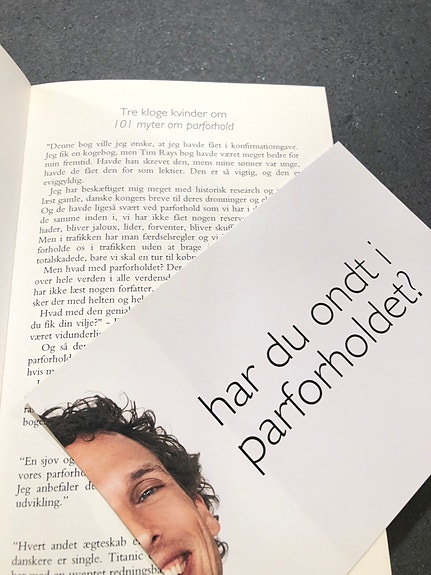 Tre kloge kvinder om
101 myter om parforhold
"Denne bog ville jeg ønske, at jeg havde fået i konfirmationsgave.
Jeg fik en kogebog, men Tim Rays bog havde været meget bedre for
min fremtid. Havde han skrevet den, mens mine sønner var unge,
havde de fået den for som lektier. Den er så vigtig, og den e
eviggyldig.
Jeg har beskæftiget mig meget med historisk research og i
læst gamle, danske kongers breve til deres dronninger og el
Og de havde ligeså svært ved parforhold som vi har i d
de samme inden i, vi har ikke fået nogen reserv
hader, bliver jaloux, lider, forventer, bliver skuff
Men i trafikken har man færdselsregler og vi l
forholde os i trafikken uden at brage
totalskadede, bare vi skal en tur til købm
Men hvad med parforholdet? Der
over hele verden i alle verdensd
har ikke læst nogen forfatter.
sker der med helten og hel
Hvad med den genial
du fik din vilje?" –
været vidunderli
Og så de
parforhold
hvis m
boge
"En sjov og
vores parforho
Jeg anbefaler de
udvikling."
"Hvert andet ægteskab e
danskere er single. Titanic
har med en uventet redningsba
har du ondt i
parforholdet?